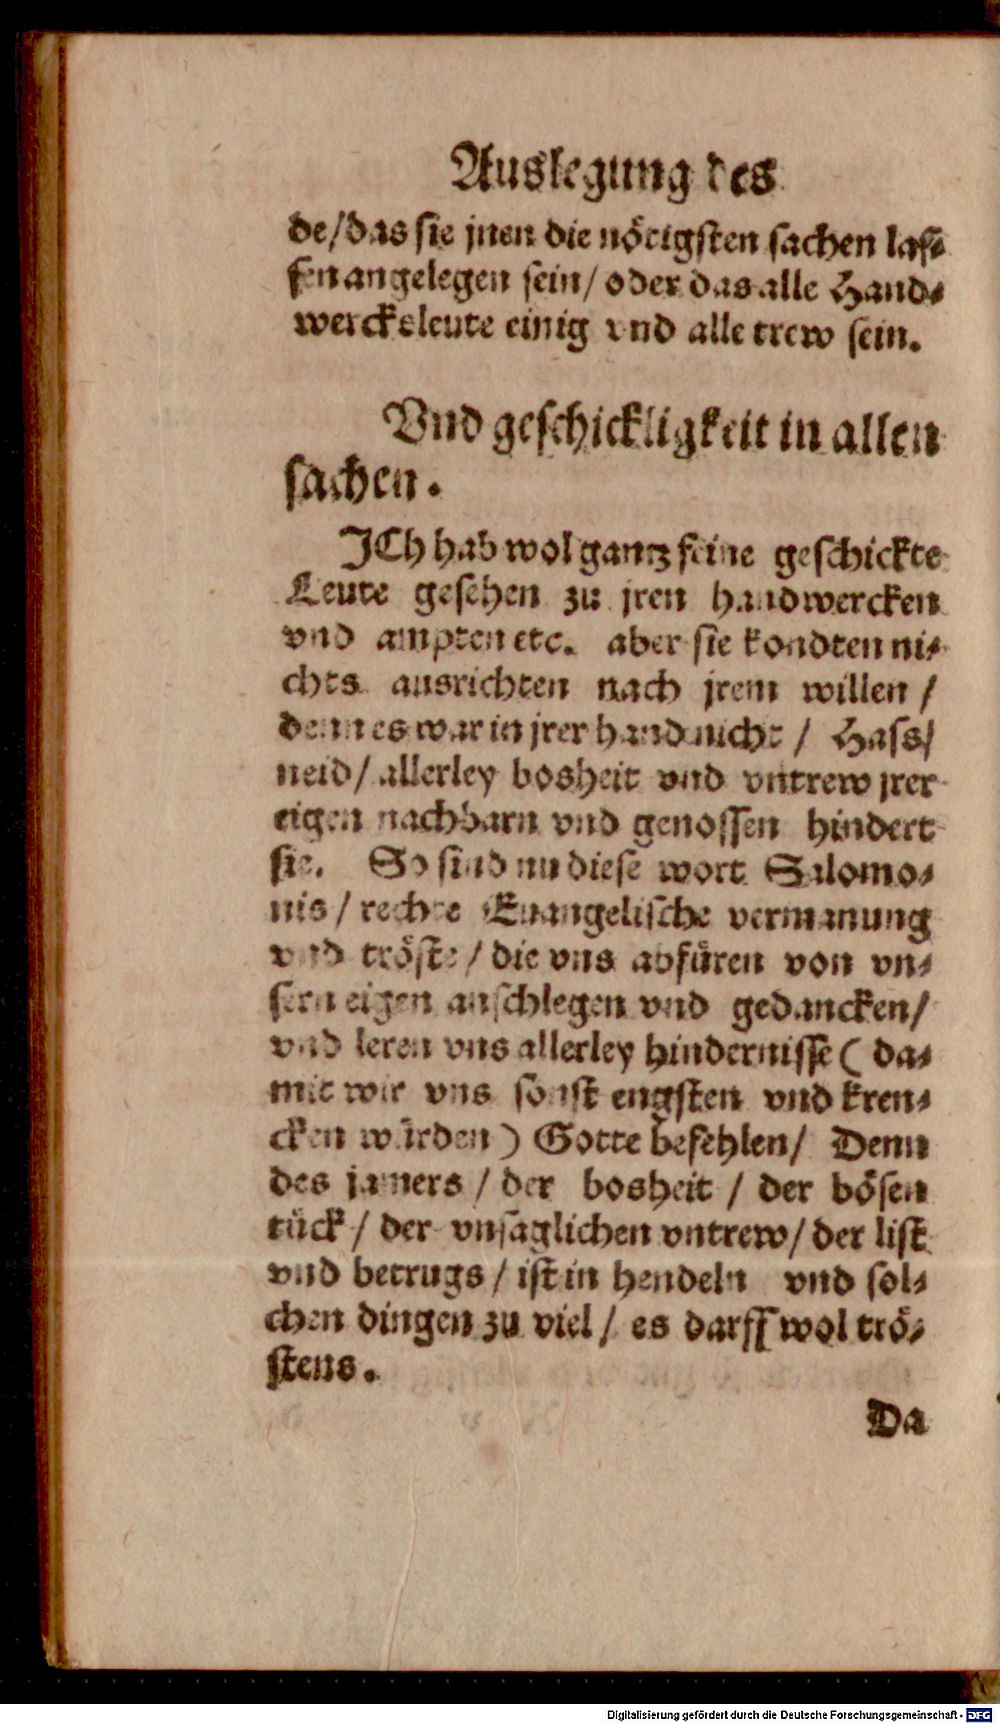 Auslegung des
de/das sie jnen die nötigsten sachen las⸗
sen angelegen sein/ oder das alle Hand⸗
wercksleute einig vnd alle trew sein.
Vnd geschickligkeit in allen
sachen.
JCh hab wol gantz feine geschickte
Leute gesehen zu jren handwercken
vnd ampten etc. aber sie kondten ni⸗
chts ausrichten nach jrem willen /
denn es war in jrer hand nicht / Hass/
neid/ allerley bosheit vnd vntrew jrer
eigen nachbarn vnd genossen hindert
sie. So sind nu diese wort Salomo⸗
nis / rechte Euangelische vermanung
vnd tröste / die vns abfüren von vn⸗
sern eigen anschlegen vnd gedancken/
vnd leren vns allerley hindernisse ( da⸗
mit wir vns sonst engsten vnd kren⸗
cken würden ) Gotte befehlen/ Denn
des jamers / der bosheit / der bösen
tück / der vnsaglichen vntrew/ der list
vnd betrugs / ist in hendeln vnd sol⸗
chen dingen zu viel / es darff wol trö⸗
stens.
Da
Digitalisierung gefördert durch die Deutsche Forschungsgemeinschaft - DFG